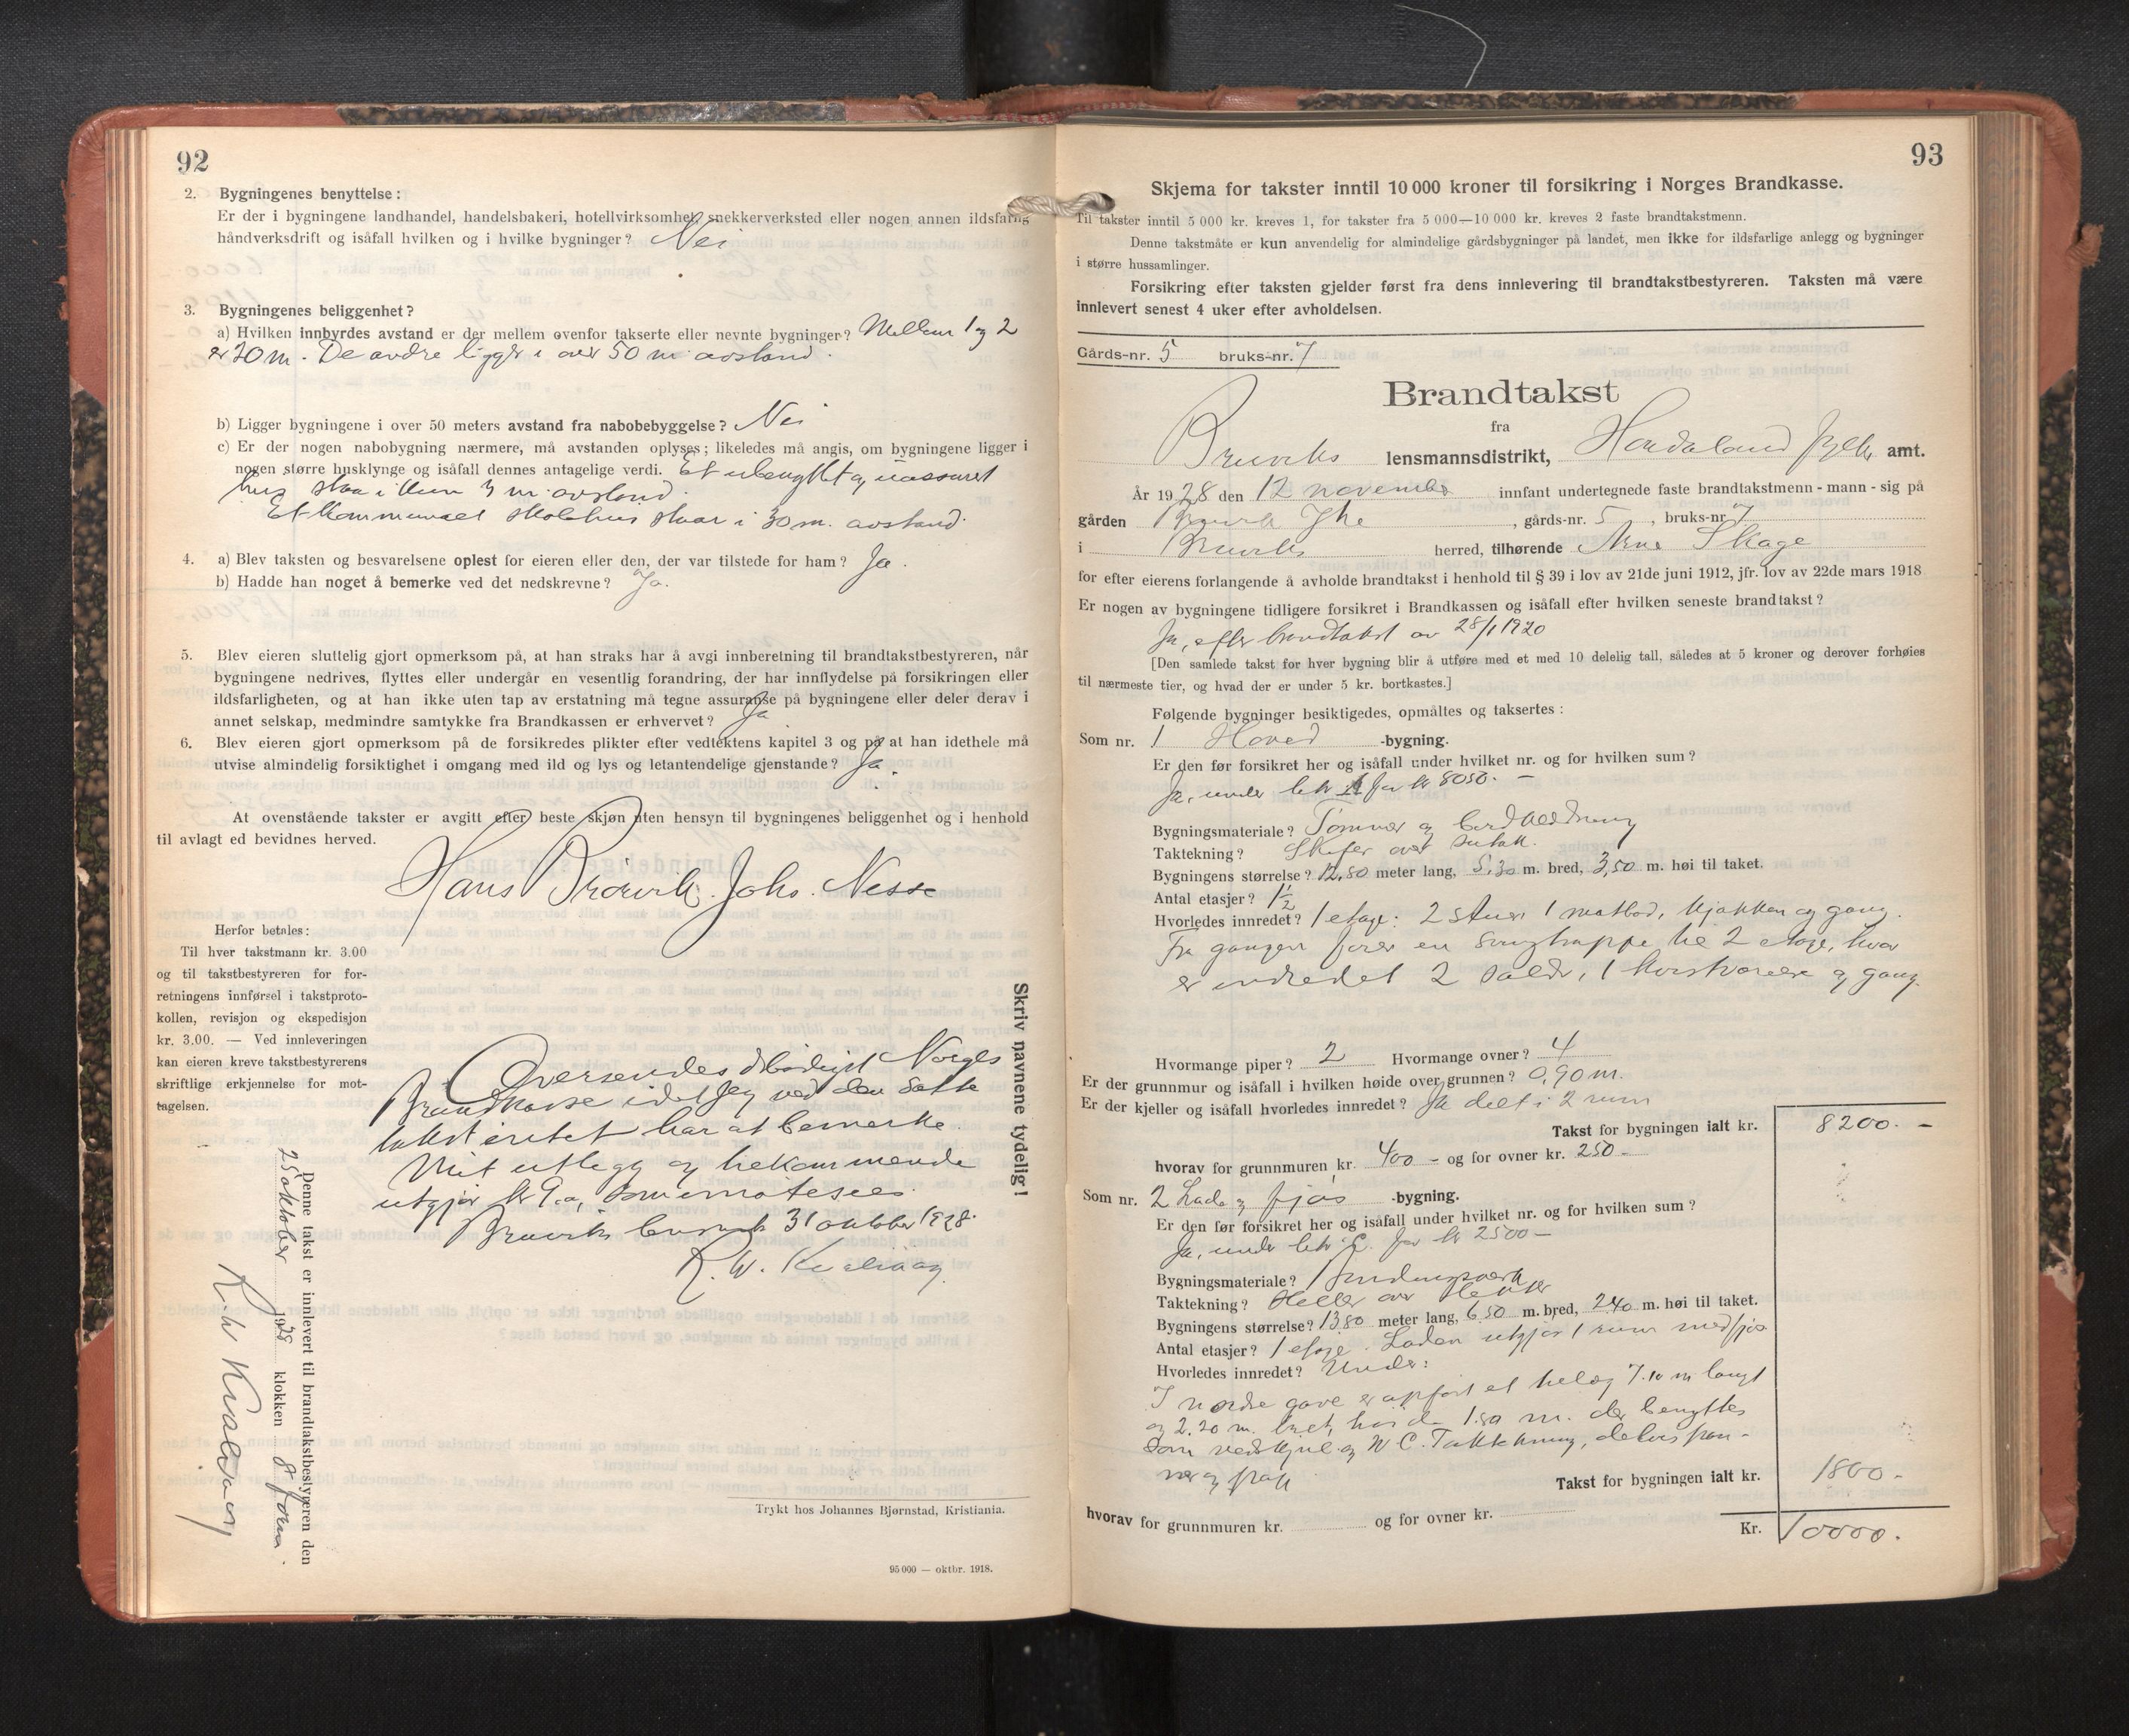 92
2. Bygningenes benyttelse:
Er der i bygningene landhandel, handelsbakeri, hotellvirksomhet, snekkerverksted eller nogen annen ildsfarlig
håndverksdrift og isåfall hvilken og i hvilke bygninger? Nei
3. Bygningenes beliggenhet?
a) Hvilken innbyrdes avstand er der mellem ovenfor takserte eller nevnte bygninger? Mellem 1 og 2
er 20 m. De andre ligger i over 50 m. avstand.
b) Ligger bygningene i over 50 meters avstand fra nabobebyggelse? Nei
c) Er der nogen nabobygning nærmere, må avstanden oplyses; likeledes må angis, om bygningene ligger i
nogen større husklynge og isåfall dennes antagelige verdi. Et ubenyttet og uassurert
hus staar i kun 3 m. avstand.
Et kommunalt skolehus staar i 30 m. avstand.
4. a) Blev taksten og besvarelsene oplest for eieren eller den, der var tilstede for ham? Ja.
b) Hadde han noget å bemerke ved det nedskrevne? Ja.
5. Blev eieren sluttelig gjort opmerksom på, at han straks har å avgi innberetning til brandtakstbestyreren, når
bygningene nedrives, flyttes eller undergår en vesentlig forandring, der har innflydelse på forsikringen eller
ildsfarligheten, og at han ikke uten tap av erstatning må tegne assuranse på bygningene eller deler derav i
annet selskap, medmindre samtykke fra Brandkassen er erhvervet? Ja
6. Blev eieren gjort opmerksom på de forsikredes plikter efter vedtektens kapitel 3 og på at han idethele må
utvise almindelig forsiktighet i omgang med ild og lys og letantendelige gjenstande? Ja.
At ovenstående takster er avgitt efter beste skjøn uten hensyn til bygningenes beliggenhet og i henhold
til avlagt ed bevidnes herved.
Hans Brøvik. Johs. Nesse
Herfor betales:
Til hver takstmann kr. 3.00
og til takstbestyreren for for-
retningens innførsel i takstproto-
kollen, revisjon og ekspedisjon
kr. 3.00. — Ved innleveringen
kan eieren kreve takstbestyrerens
skriftlige erkjennelse for mot-
tagelsen.
Oversendes Norges
Brandkasse idet jeg ved den satte
takst intet har at bemerke.
Mit utlegg og tilkommende
utgjør kr 9.00, som imøtesees.
Bruviks 31 oktober 1928.
Skriv navnene tydelig!
Denne takst er innlevert til brandtakstbestyreren den
25 oktober 1928 klokken 8 form.
Trykt hos Johannes Bjørnstad, Kristiania.
95 000 — oktbr. 1918.
93
Skjema for takster inntil 10 000 kroner til forsikring i Norges Brandkasse.
Til takster inntil 5 000 kr. kreves 1, for takster fra 5 000—10 000 kr. kreves 2 faste brandtakstmenn.
Denne takstmåte er kun anvendelig for almindelige gårdsbygninger på landet, men ikke for ildsfarlige anlegg og bygninger
i større hussamlinger.
Forsikring efter taksten gjelder først fra dens innlevering til brandtakstbestyreren. Taksten må være
innlevert senest 4 uker efter avholdelsen.
Gårds-nr. 5 bruks-nr. 7
Brandtakst
fra
Bruviks lensmannsdistrikt, Hordaland fylke amt.
År 1928 den 12 november innfant undertegnede faste brandtakstmenn - mann - sig på
gården Bruvik Ytre, gårds-nr. 5, bruks-nr. 7
i Bruviks herred, tilhørende Arne Skage
for efter eierens forlangende å avholde brandtakst i henhold til § 39 i lov av 21de juni 1912, jfr. lov av 22de mars 1918
Er nogen av bygningene tidligere forsikret i Brandkassen og isåfall efter hvilken seneste brandtakst?
Ja, efter brandtakst av 28/1 1920
[Den samlede takst for hver bygning blir å utføre med et med 10 delelig tall, således at 5 kroner og derover forhøies
til nærmeste tier, og hvad der er under 5 kr. bortkastes.]
Følgende bygninger besiktigedes, opmåltes og taksertes:
Som nr. 1 Hoved -bygning.
Er den før forsikret her og isåfall under hvilket nr. og for hvilken sum?
Ja, under litr A for kr 8050. -
Bygningsmateriale? Tømmer og bordklædning
Taktekning? Skifer over sutak.
Bygningens størrelse? 12,80 meter lang, 5,30 m. bred, 3,50 m. høi til taket.
Antal etasjer? 1½
Hvorledes innredet? 1 etage: 2 stuer 1 matbod, kjøkken og gang.
Fra gangen fører en svingtrappe til 2 etage, hvor
er indredet 2 saler, 1 kvistværelse og gang.
Hvormange piper? 2 Hvormange ovner? 4
Er der grunnmur og isåfall i hvilken høide over grunnen? 0,90 m.
Er der kjeller og isåfall hvorledes innredet? Ja delt i 2 rum
Takst for bygningen ialt kr. 8200. -
hvorav for grunnmuren kr. 400 - og for ovner kr. 250 -
Som nr. 2 Lade og fjøs -bygning.
Er den før forsikret her og isåfall under hvilket nr. og for hvilken sum?
Ja, under litr C. for kr 2500 -
Bygningsmateriale? Bindingsverk
Taktekning? Heller over
Bygningens størrelse? 13,80 meter lang, 6,50 m. bred, 2,40 m. høi til taket.
Antal etasjer? 1 etage. Laden utgjør 1 rum med fjøs
Hvorledes innredet? Under:
I nordre gavl er opført et tilbæg 7.10 m langt
og 2.20 m. bret, høide 1.80 m. der benyttes
som vedskjul og W.C. Taktekning, delvis pan-
ner og papp
Takst for bygningen ialt kr. 1800 -
hvorav for grunnmuren kr. og for ovner kr.
Kr. 10000.